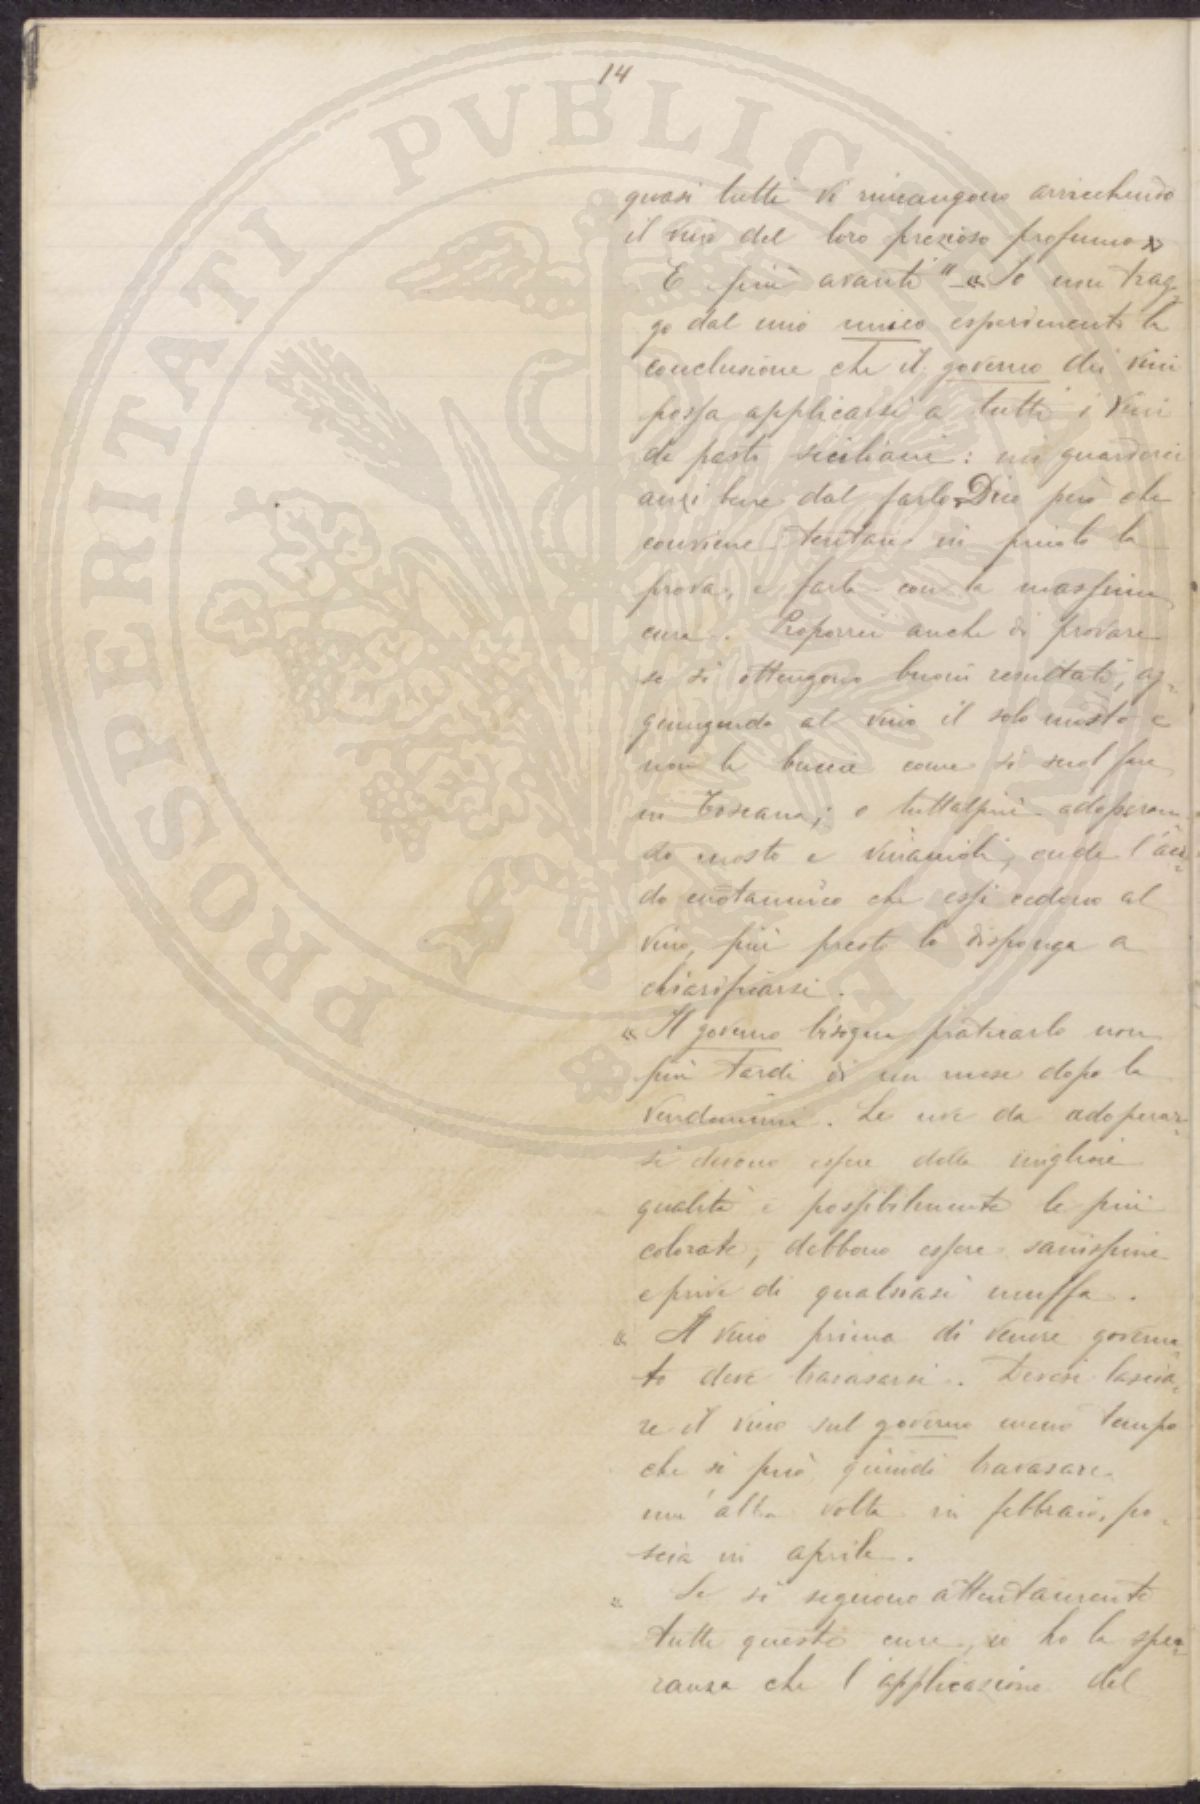 14
quasi tutti vi rimangono arricchendo
il vino del loro prezioso profumo»
E più avanti "-« Io non trag-
go dal mio unico esperimento la
conclusione che il governo dei vini
possa applicarsi a tutti i vini
da pasto siciliani: mi guarderei
anzi bene dal farlo. Dico però che
conviene tentare in piccolo la
prova, e farla con la massima
cura. Proporrei anche di provare
se si ottengono buoni resultati, ag-
giungendo al vino il solo mosto e
non le bucce come si suol fare
in Toscana; o tuttalpiù adoperan-
do mosto e vinaccioli, onde l'aci-
do enotannico che essi cedono al
vino, più presto lo disponga a
chiarificarsi.
« Il governo bisogna praticarlo non
più tardi di un mese dopo la
vendemmia. Le uve da adoperar-
si devono essere della migliore
qualità e possibilmente le più
colorate, debbono essere sanissime
e prive di qualsiasi muffa.
« Il vino prima di venire governa-
to deve travasarsi. Devesi lascia-
re il vino sul governo meno tempo
che si può, quindi travasare
un'altra volta in febbraio, po-
scia in aprile.
« Se si seguono attentamente
tutte queste cure, io ho la spe-
ranza che l'applicazione del
PROSPERITATI PVBLICAE